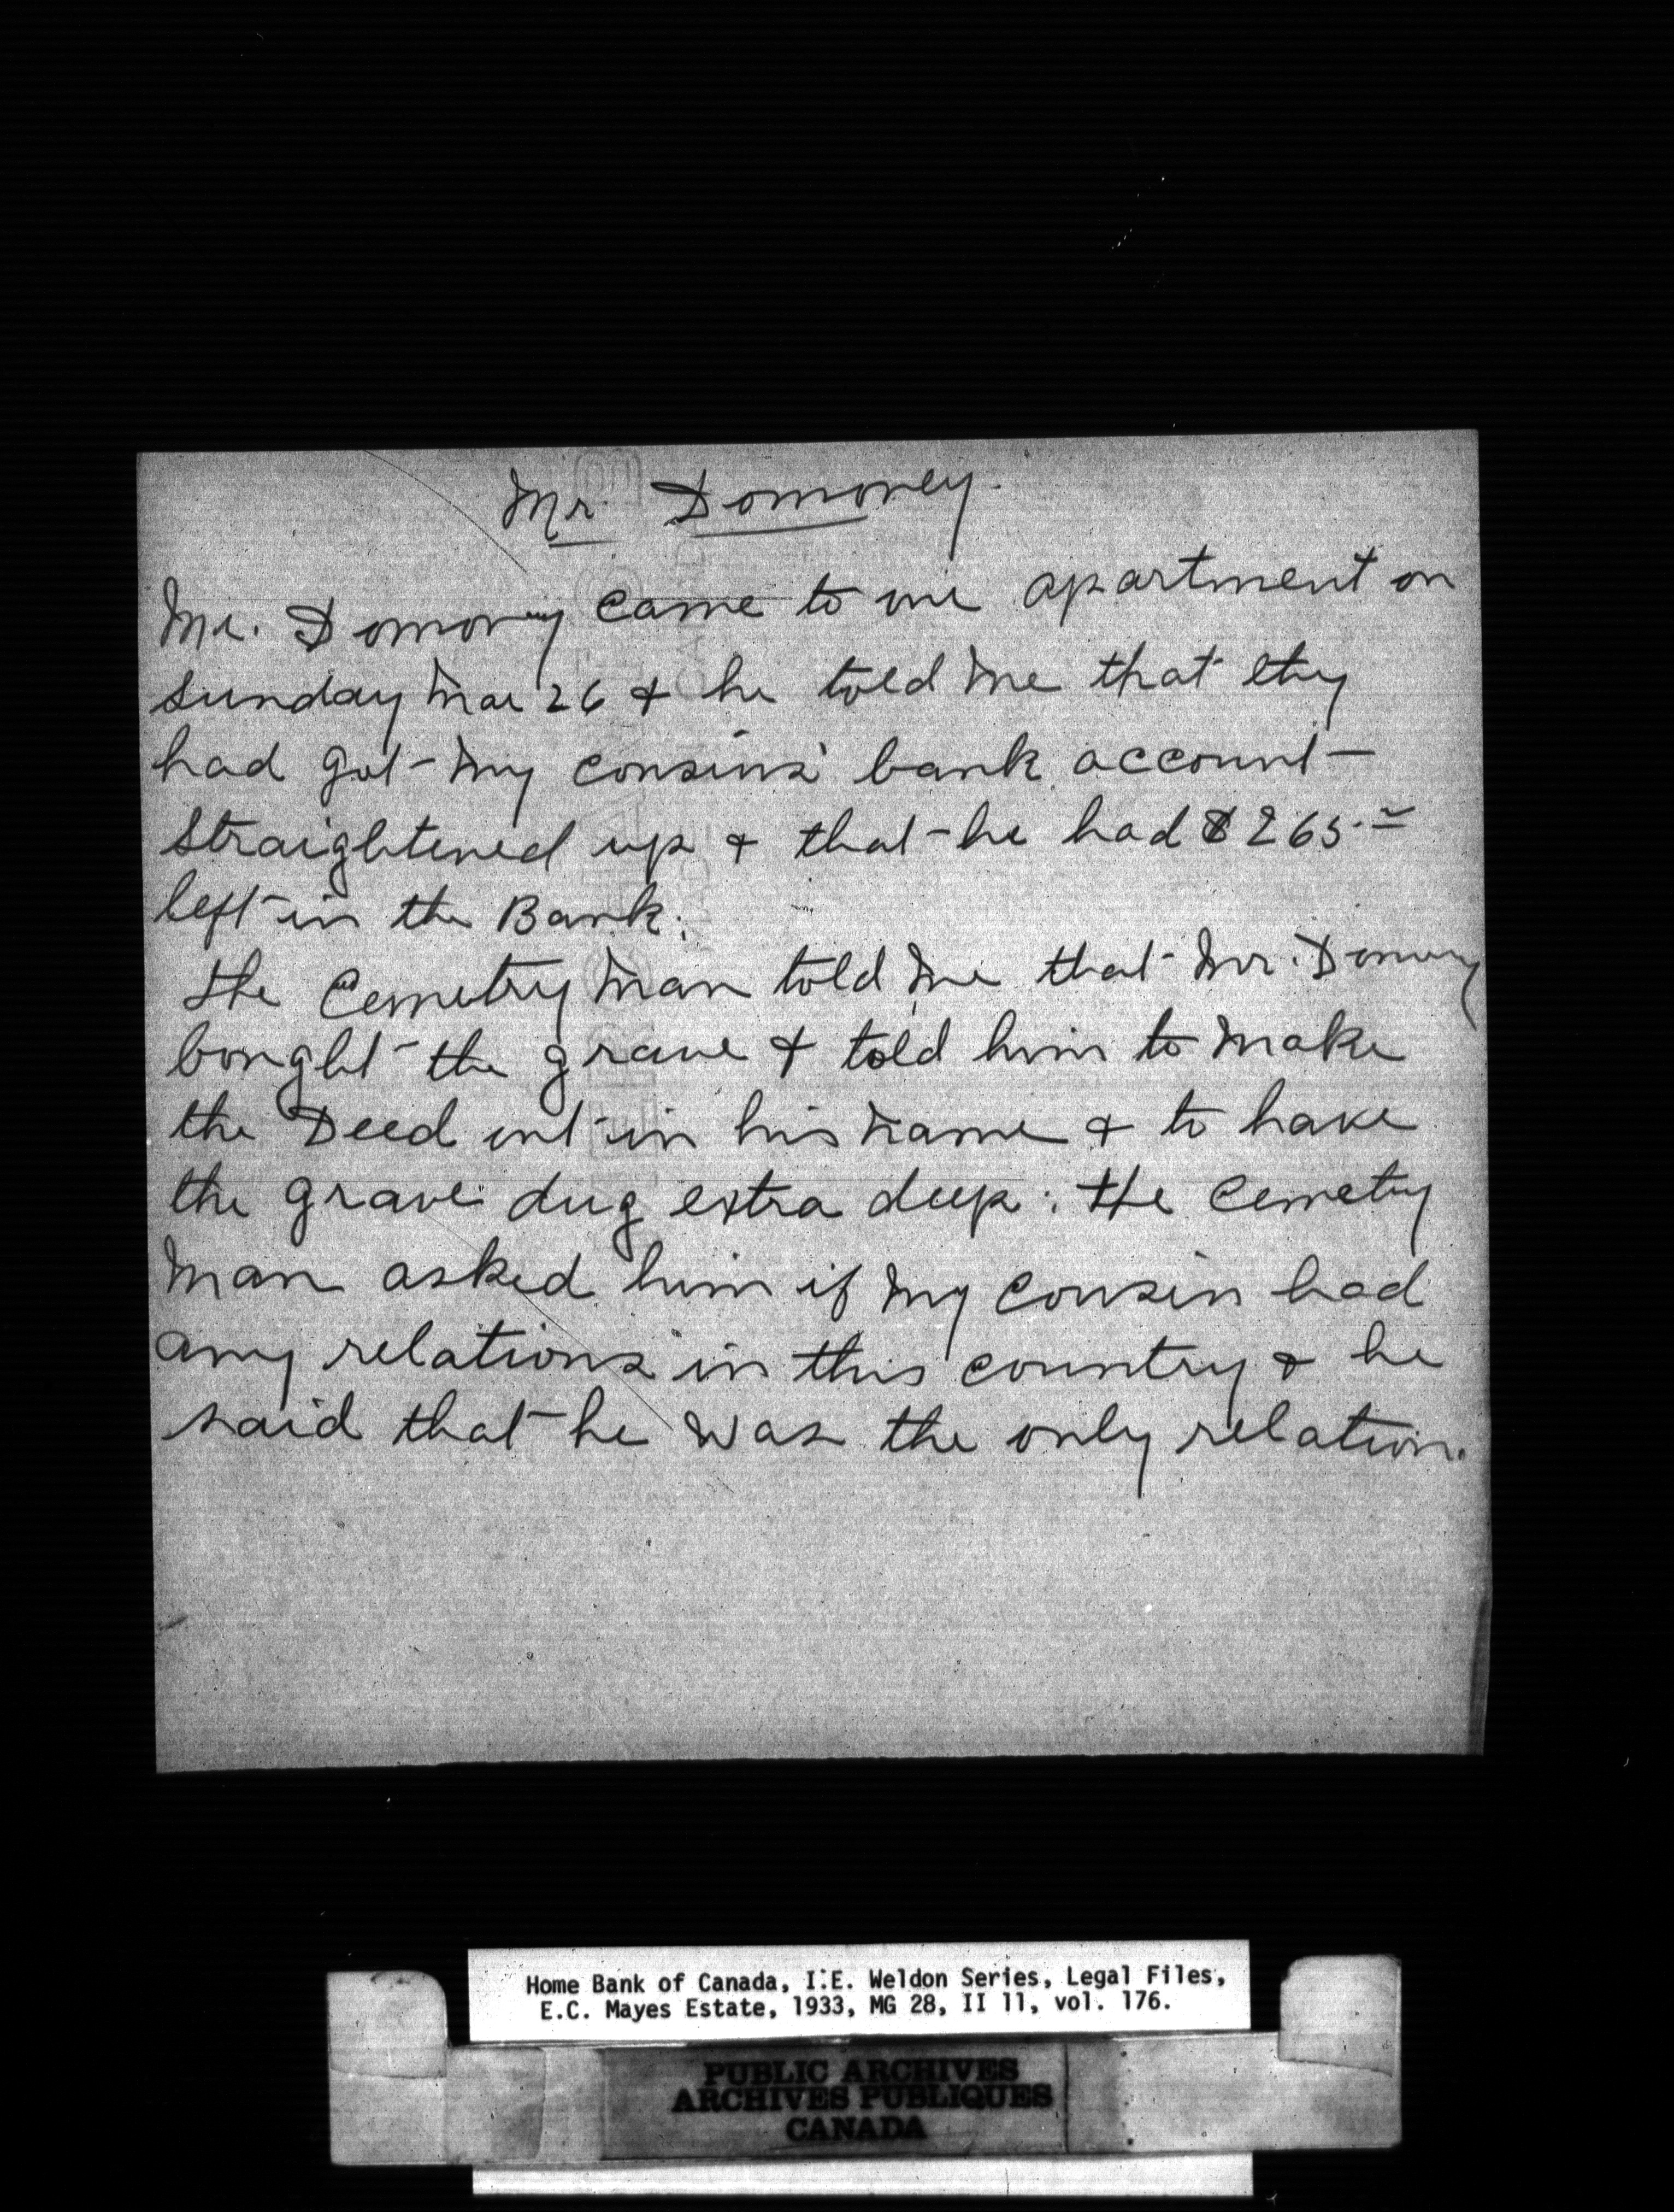 Mr. Domoney.
Mr. Domoney came to me apartment on
Sunday Mar 26 & he told me that they
had got my cousins bank account
straightened up & that he had $265.=
left in the Bank.
the Cemetry man told me that Mr. Domoney
bought the grave & told him to make
the Deed out in his name & to have
the grave dug extra deep. the Cemetry
man asked him if my cousin had
any relations in this country & he
said that he was the only relation.
Home Bank of Canada, I.E. Weldon Series, Legal Files,
E.C. Mayes Estate, 1933, MG 28, II 11, vol. 176.
PUBLIC ARCHIVES
ARCHIVES PUBLIQUES
CANADA